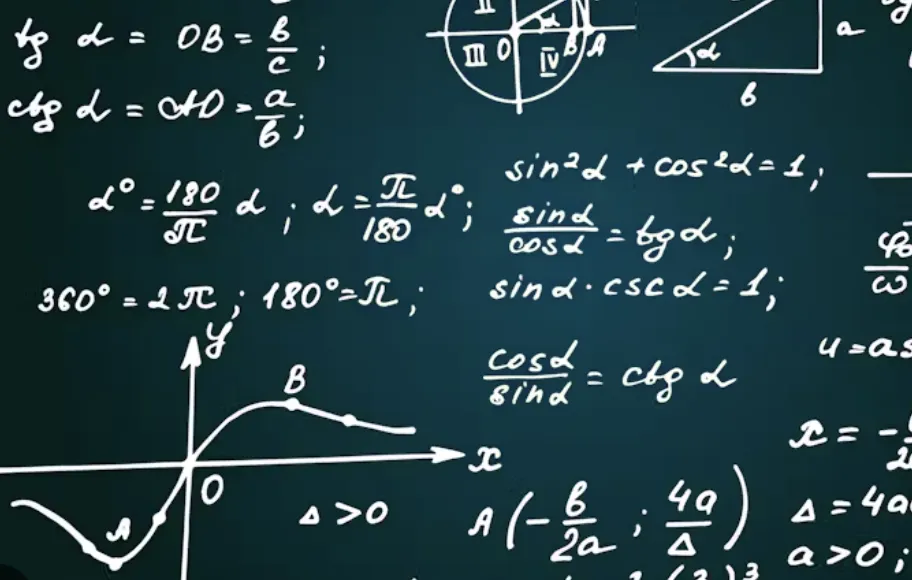 tg α = OB = b/c ;
ctg α = AD = a/b ;
II
III O IV B A
α
a
b
α
α° = 180/π α ; α = π/180 α° ;
360° = 2π ; 180° = π ;
sin²α + cos²α = 1 ;
sinα/cosα = tgα ;
sinα · cscα = 1 ;
cosα/sinα = ctg α
y
B
x
O
A
Δ > 0
A(-b/2a ; 4a/Δ)
ω
x = -
Δ = 4a
a > 0 ;